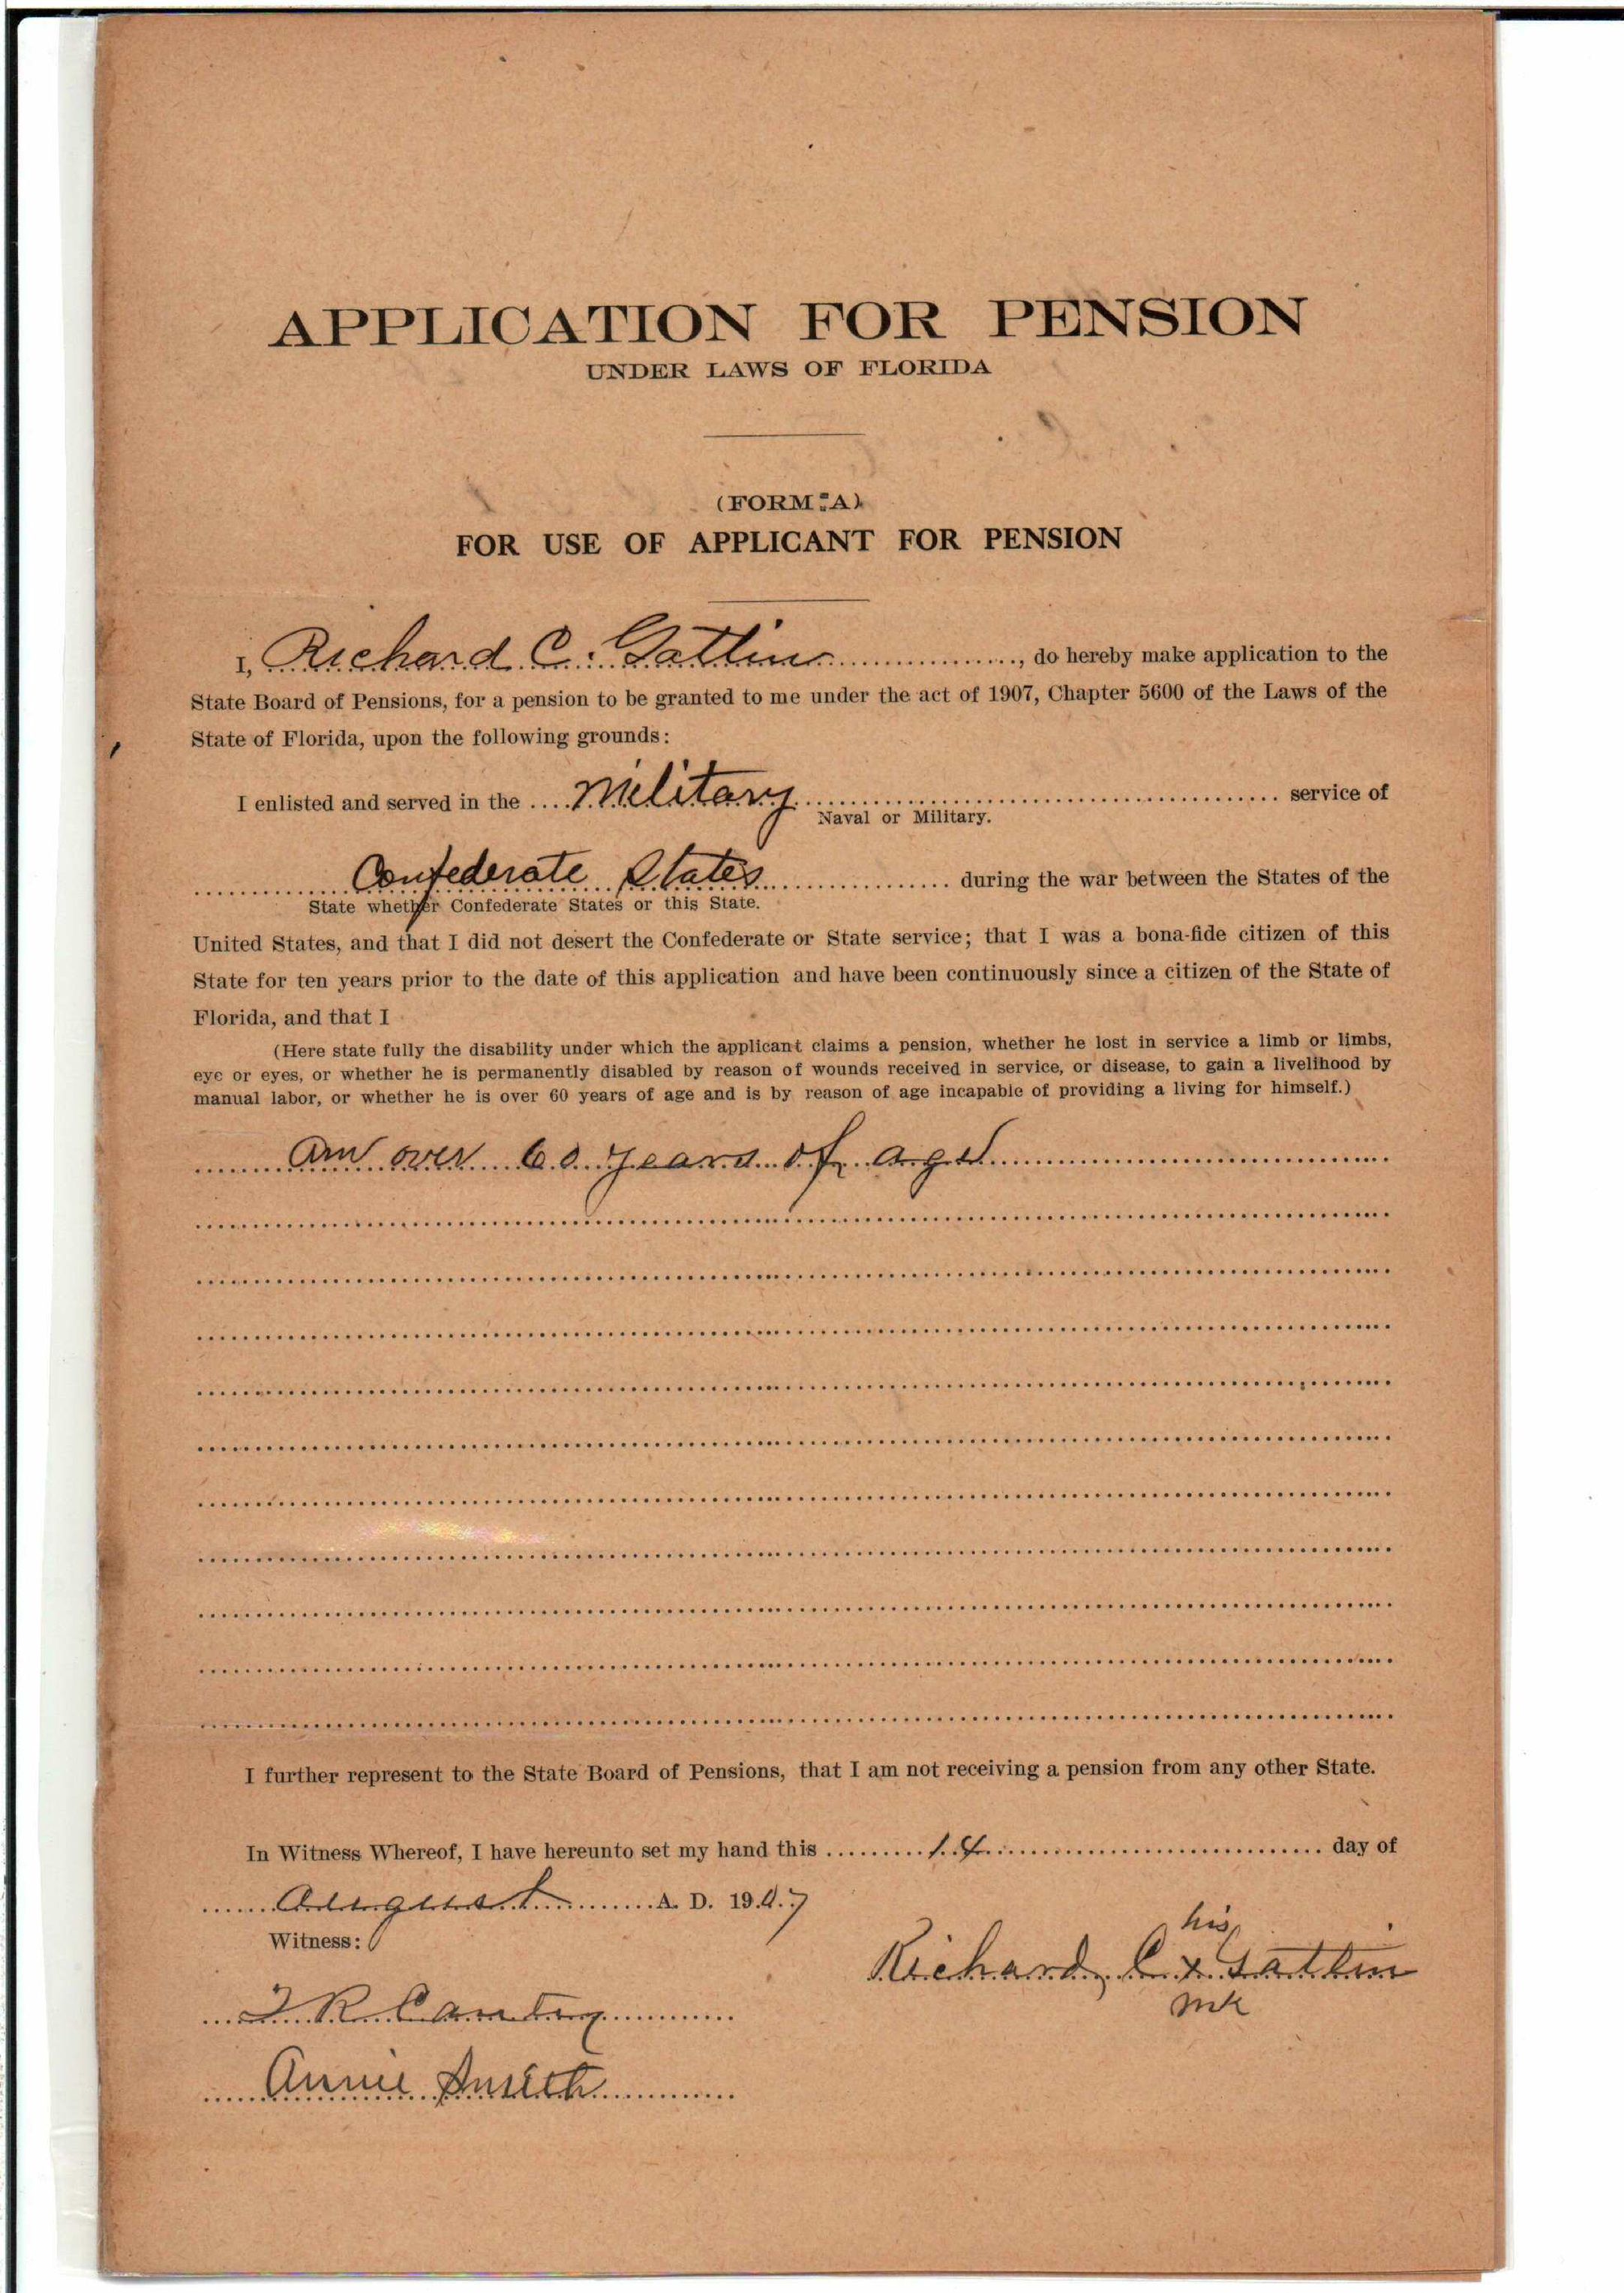 APPLICATION FOR PENSION
UNDER LAWS OF FLORIDA
(FORM A)
FOR USE OF APPLICANT FOR PENSION
I, Richard C. Gatlin, do hereby make application to the
State Board of Pensions, for a pension to be granted to me under the act of 1907, Chapter 5600 of the Laws of the
State of Florida, upon the following grounds:
I enlisted and served in the Military service of
Naval or Military.
Confederate States during the war between the States of the
State whether Confederate States or this State.
United States, and that I did not desert the Confederate or State service; that I was a bona-fide citizen of this
State for ten years prior to the date of this application and have been continuously since a citizen of the State of
Florida, and that I
(Here state fully the disability under which the applicant claims a pension, whether he lost in service a limb or limbs,
eye or eyes, or whether he is permanently disabled by reason of wounds received in service, or disease, to gain a livelihood by
manual labor, or whether he is over 60 years of age and is by reason of age incapable of providing a living for himself.)
Am over 60 years of age
I further represent to the State Board of Pensions, that I am not receiving a pension from any other State.
In Witness Whereof, I have hereunto set my hand this 14 day of
August A. D. 1907
Witness:
his
Richard C x Gatlin
mk
R Canty
Annie Smith